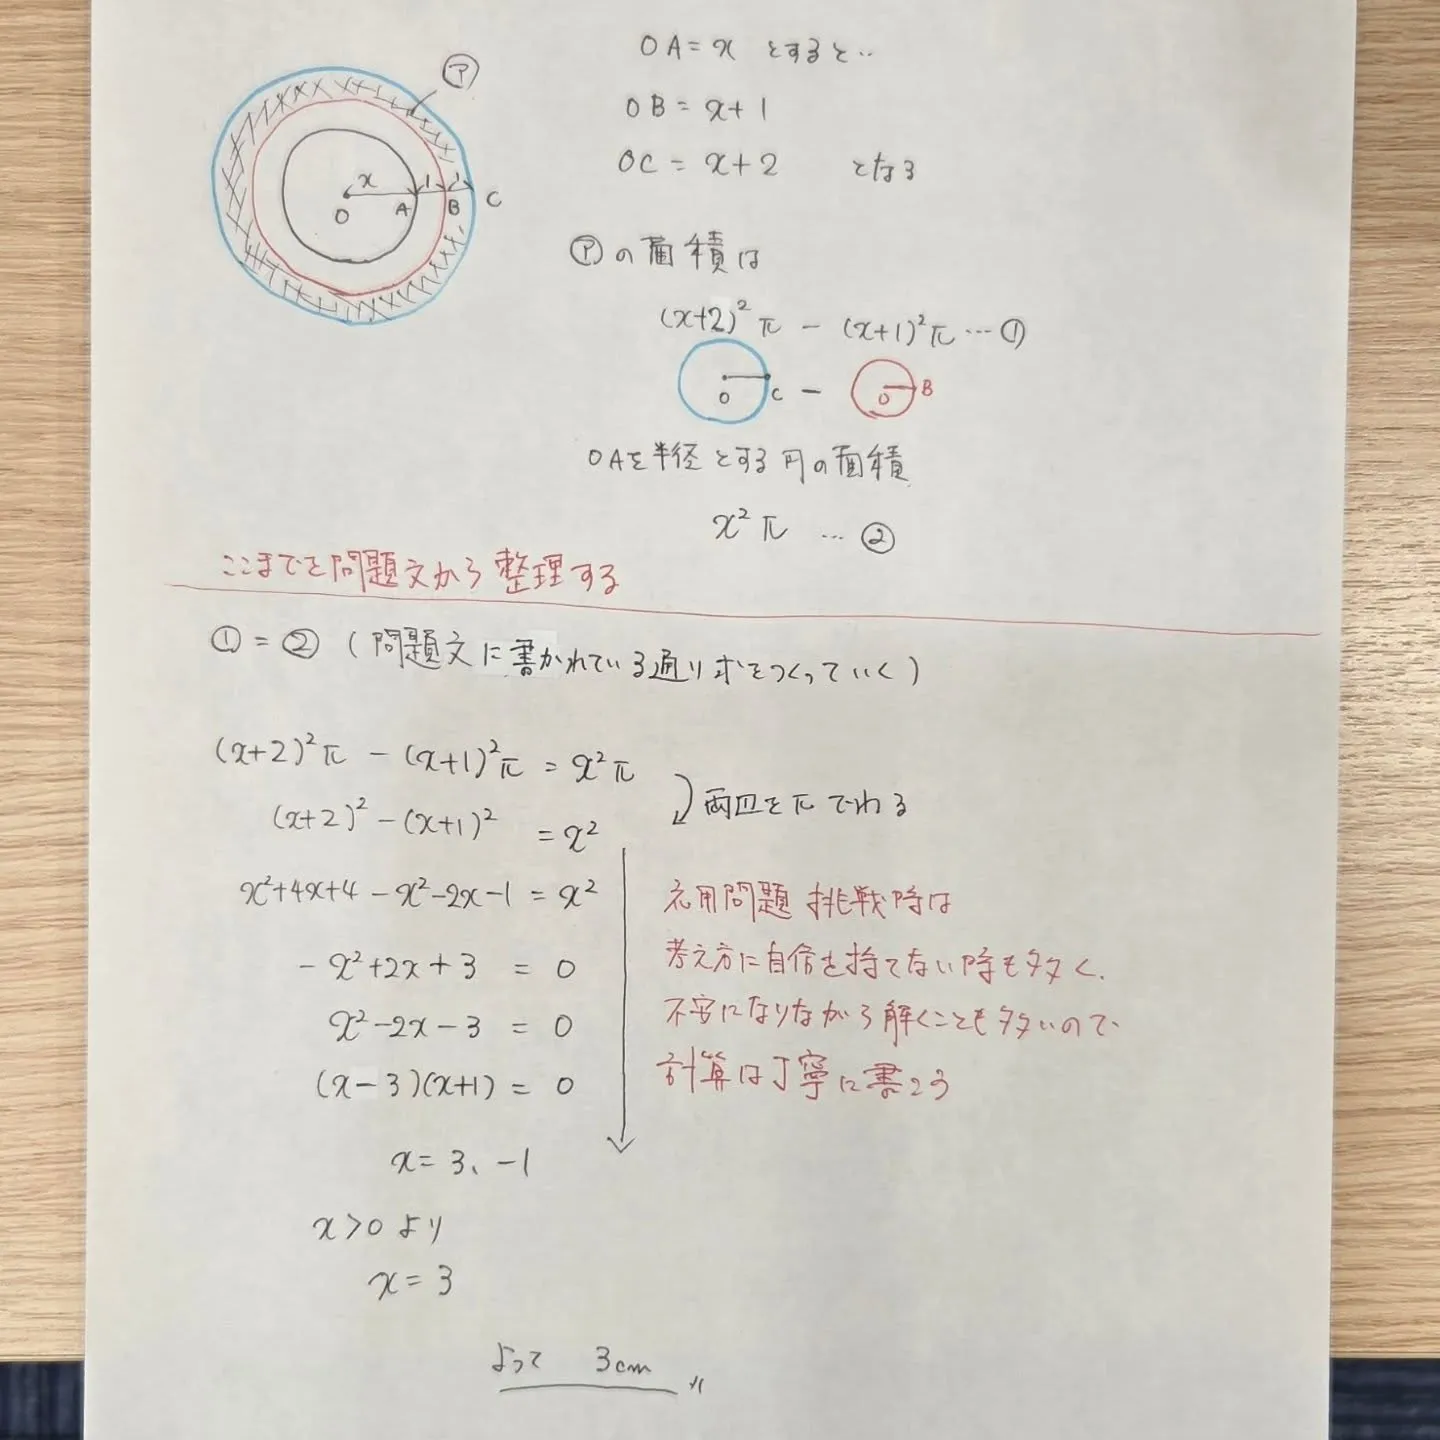 ㋐
x 1 1
O A B C
OA = x とすると‥
OB = x+1
OC = x+2 となる
㋐の面積は
(x+2)²π − (x+1)²π … ①
O C − O B
OAを半径とする円の面積
x²π … ②
ここまでを問題文から整理する
① = ② (問題文に書かれている通り式をつくっていく)
(x+2)²π − (x+1)²π = x²π
両辺をπでわる
(x+2)² − (x+1)² = x²
x²+4x+4 − x²−2x−1 = x²
− x²+2x+3 = 0
x²−2x−3 = 0
(x−3)(x+1) = 0
x = 3、−1
x>0 より
x = 3
よって 3cm
応用問題 挑戦時は
考え方に自信を持てない時も多く、
不安になりながら解くことも多いので
計算は丁寧に書こう